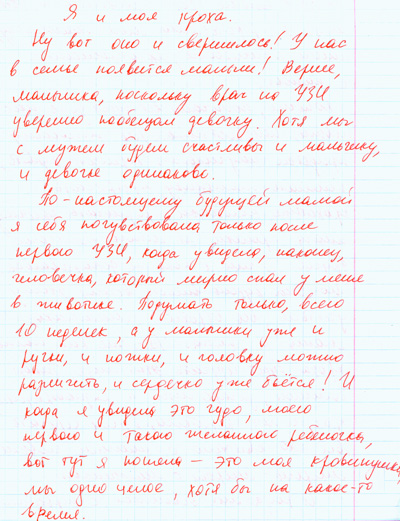 Я и моя кроха.
Ну вот оно и свершилось! У нас
в семье появится малыш! Вернее,
малышка, поскольку врач на УЗИ
уверенно пообещал девочку. Хотя мы
с мужем будем счастливы и мальчику,
и девочке одинаково.
По-настоящему будущей мамой
я себя почувствовала только после
первого УЗИ, когда увидела, наконец,
человечка, который мирно спал у меня
в животике. Подумать только, всего
10 неделек, а у малышки уже и
ручки, и ножки, и головку можно
различить, и сердечко уже бьётся! И
когда я увидела это чудо, моего
первого и такого желанного ребёночка,
вот тут я поняла — это моя кровинушка,
мы одно целое, хотя бы на какое-то
время.